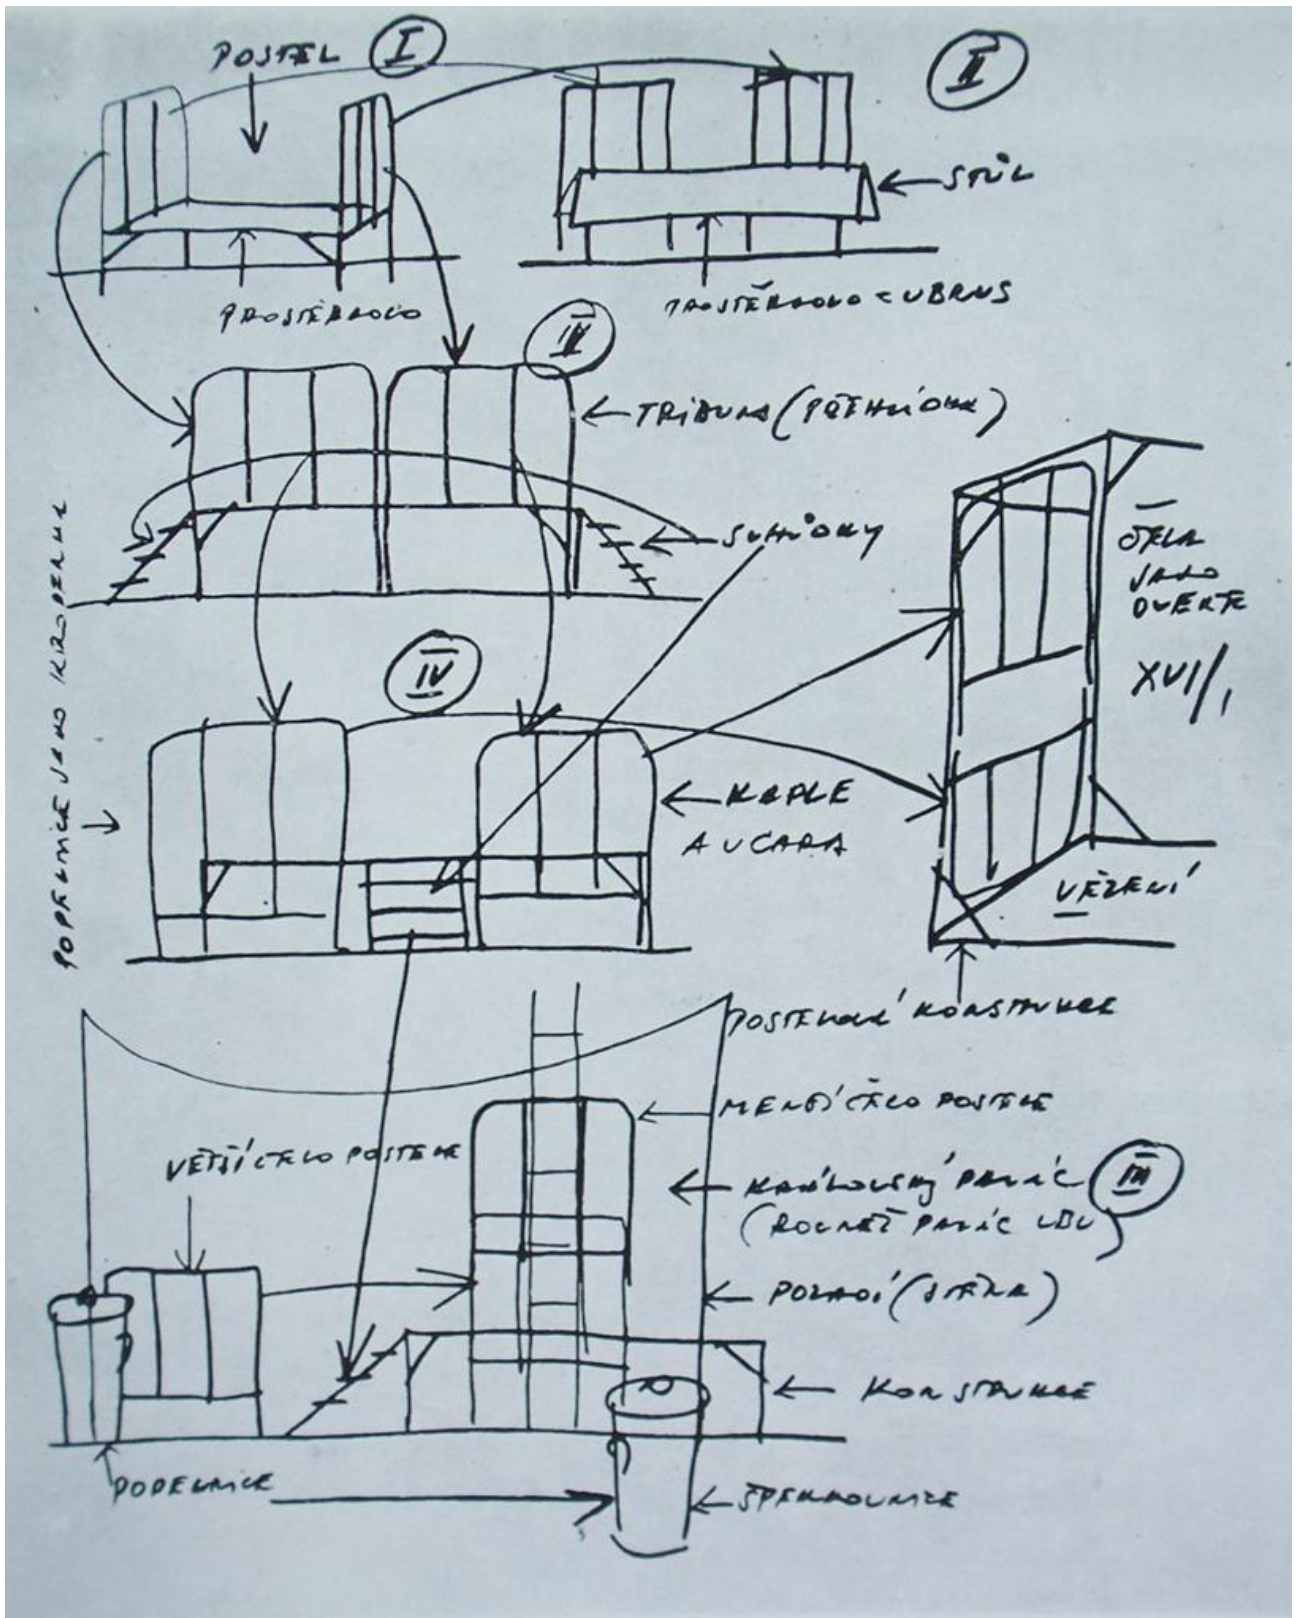 POSTEL I
II
STŮL
PROSTĚRADLO
PROSTĚRADLO = UBRUS
TRIBUNA (PŘEHLÍDKA)
SCHŮDKY
ČELA
JAKO
DVEŘE
XVI/1
IV
POPELNICE JAKO
KAPLE
A UCARA
VĚZENÍ
POSTELOVÁ KONSTRUKCE
MENŠÍ ČELO POSTELE
VĚTŠÍ ČELO POSTELE
KRÁLOVSKÝ PALÁC III
(ROVNĚŽ PALÁC UBU)
POZADÍ (STĚNA)
KONSTRUKCE
POPELNICE
ŠPERKOVNICE